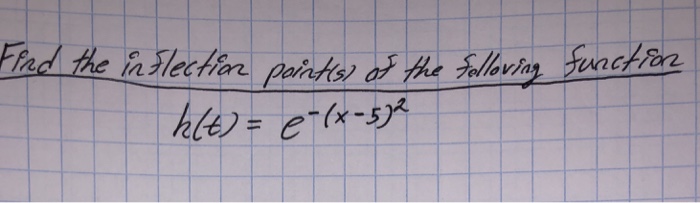 Find the inflection point(s) of the following function
h(t) = e^-(x-5)^2